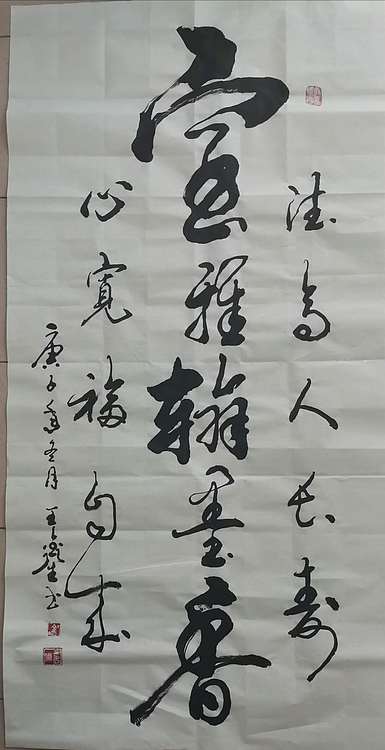 德高人长寿
室雅翰墨香
心寬福自来
庚子年冬月 王 书